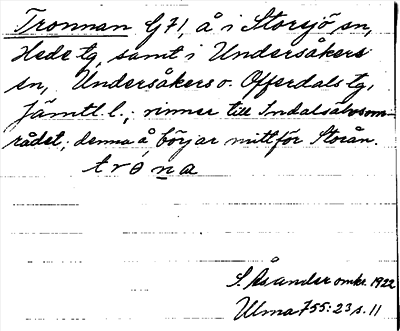 Tronnan G71, å i Storsjö sn,
Hede tg, samt i Undersåkers
sn, Undersåkers o. Offerdals tg,
Jämtl. l.; rinner till Indalsälvsom-
rådet; denna å börjar mitt för Storån.
tró̱na
S. Åsander omkr. 1922
Ulma 755:23 s. 11